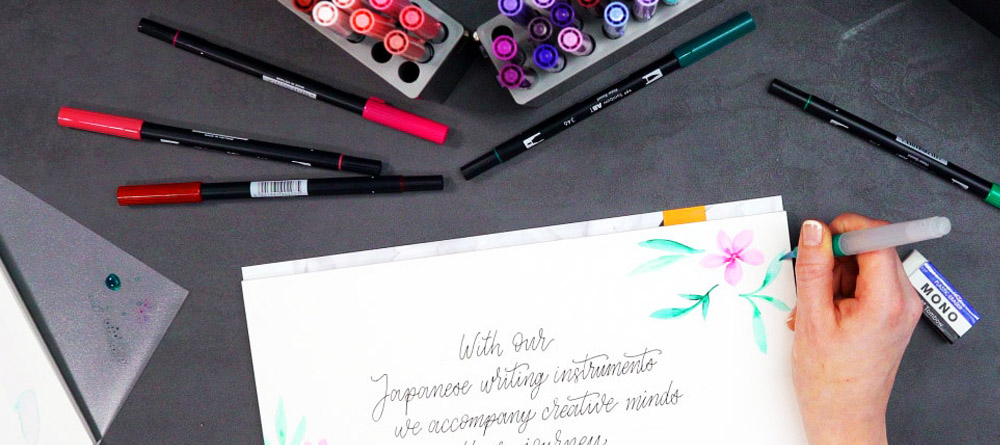 ABT
346
PLASTIC ERASER
MONO
Tombow
With our
Japanese writing instruments
we accompany creative minds
journey